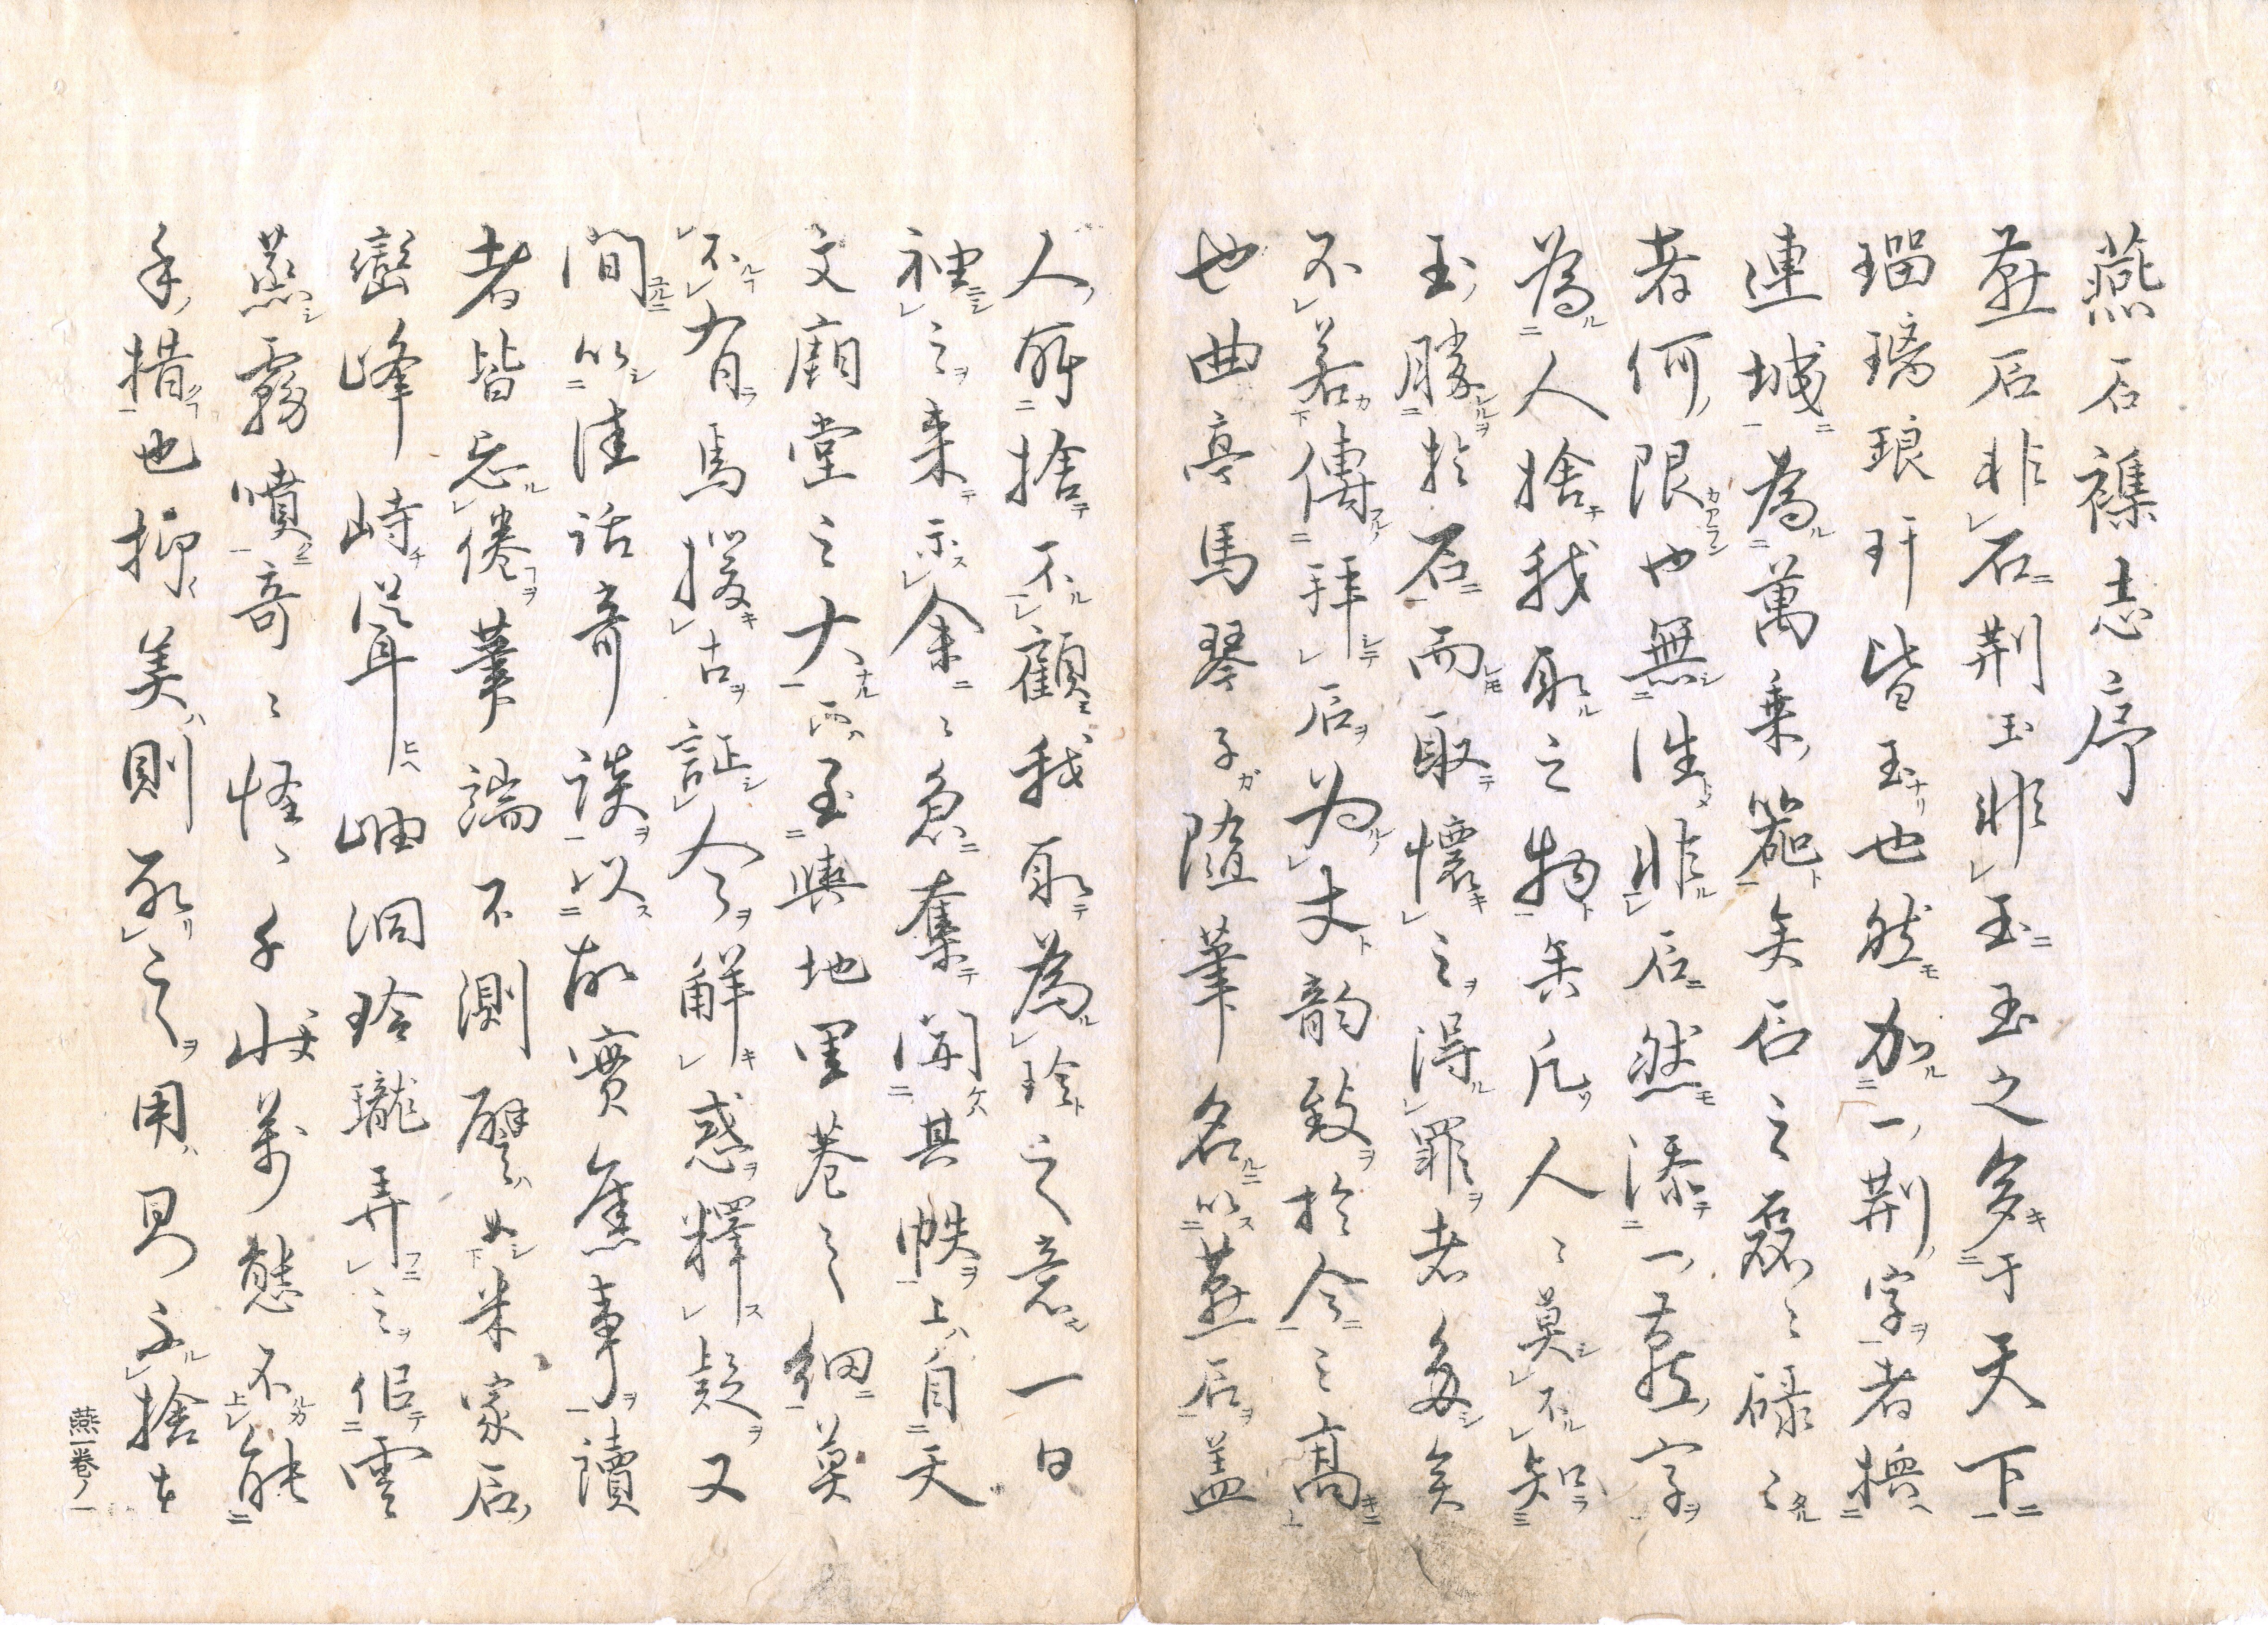 燕石襍志序
燕石非石荆玉非玉玉之多于天下
瑠璃琅玕皆玉也然加一荆字者換
連城為萬乗範矣石之磊々碌々
者何限也無往非石然添一燕字
為人捨我取之物矣凡人々莫不知
玉勝於石而取懷之得罪者多矣
不若傳拜石為丈韵致於今之高
也曲亭馬琴子隨筆名以燕石蓋
人所捨不顧我取為珍之意一日
袖之来示余々急奪開其帙上自天
文廟堂之大而至輿地里巷之細莫
不有焉援古証今解惑釋疑又
間以佳話奇談以故實舊事讀
者皆忘倦筆端不測譬如米家石
巒峰峙從耳岫洞玲瓏弄之倨雲
蒸霧噴奇々怪々千状萬態不能
手措也抑美則取之用則不捨古
燕一巻ノ一